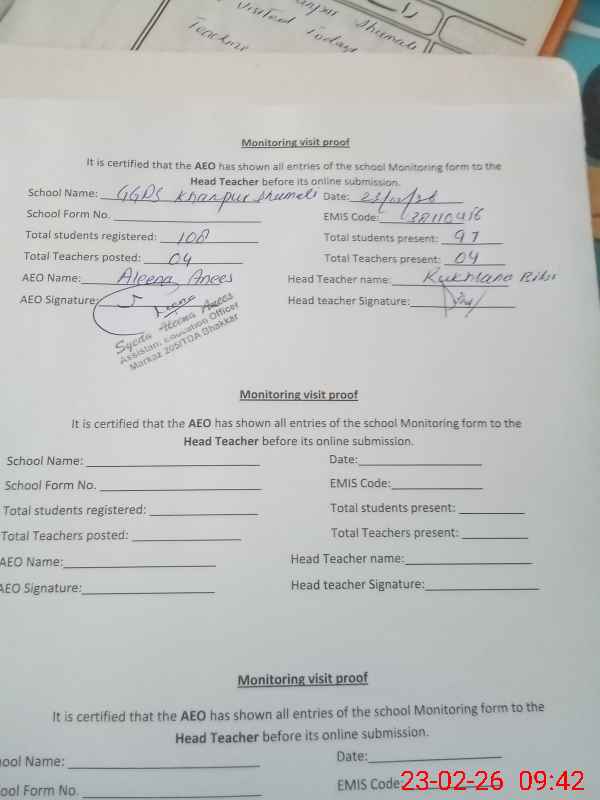 anpur Shumali
visited Today
Teachers
Monitoring visit proof
It is certified that the AEO has shown all entries of the school Monitoring form to the
Head Teacher before its online submission.
School Name: GGPS Khanpur Shumali Date: 23/02/26
School Form No. EMIS Code: 38110416
Total students registered: 108 Total students present: 97
Total Teachers posted: 04 Total Teachers present: 04
AEO Name: Aleena Anees Head Teacher name: Rukhsana Bibi
AEO Signature: Head teacher Signature:
Syeda Aleena Anees
Assistant Education Officer
Markaz 205/TDA Bhakkar
Monitoring visit proof
It is certified that the AEO has shown all entries of the school Monitoring form to the
Head Teacher before its online submission.
School Name: Date:
School Form No. EMIS Code:
Total students registered: Total students present:
Total Teachers posted: Total Teachers present:
AEO Name: Head Teacher name:
AEO Signature: Head teacher Signature:
Monitoring visit proof
It is certified that the AEO has shown all entries of the school Monitoring form to the
Head Teacher before its online submission.
ool Name: Date:
ool Form No. EMIS Code:
23-02-26 09:42